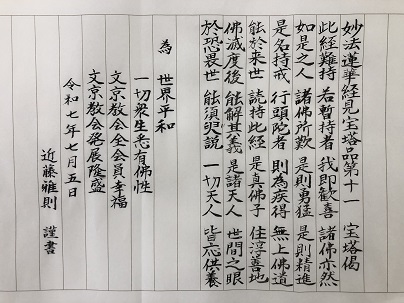 妙法蓮華経見宝塔品第十一　宝塔偈
此経難持　若暫持者　我即歓喜　諸佛亦然
如是之人　諸佛所歎　是則勇猛　是則精進
是名持戒　行頭陀者　則為疾得　無上佛道
能於来世　読持此経　是真佛子　住淳善地
佛滅度後　能解其義　是諸天人　世間之眼
於恐畏世　能須臾説　一切天人　皆応供養
為　世界平和
一切衆生悉有佛性
文京教会全会員幸福
文京教会発展隆盛
令和七年七月五日
近藤雅則　謹書